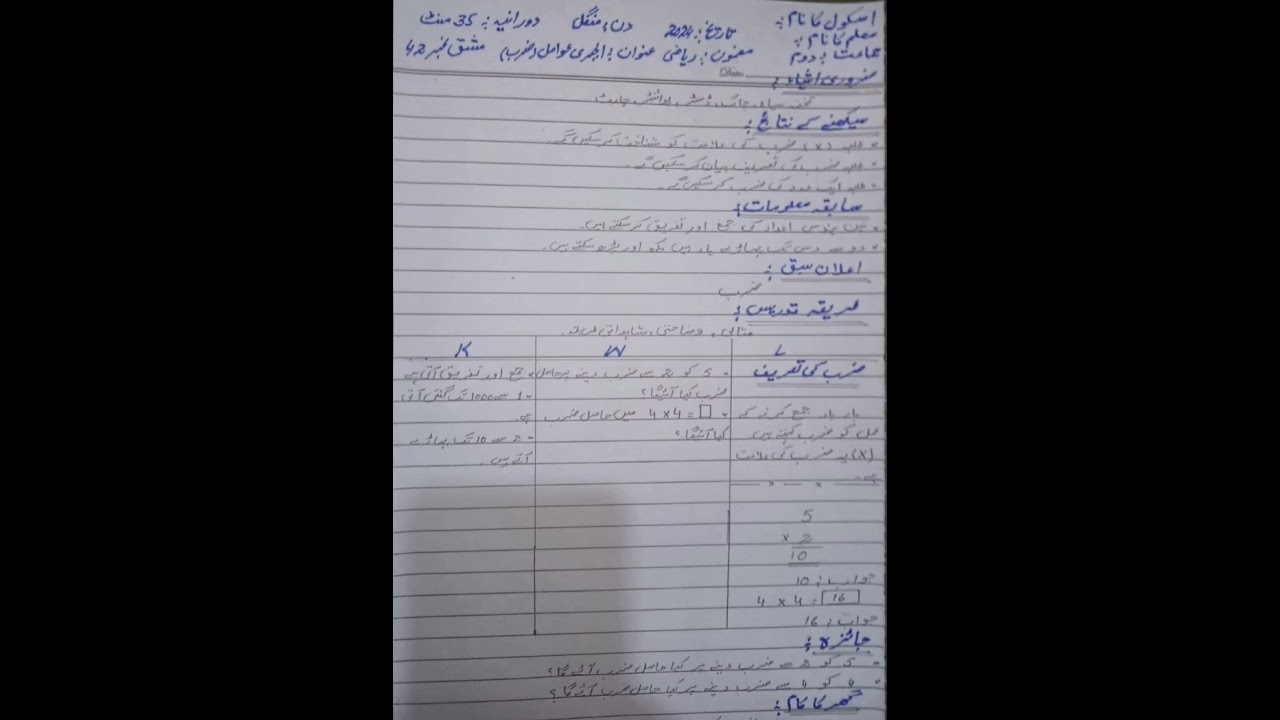 اسکول کا نام:
معلم کا نام:
تاریخ: 2024 دن: منگل دورانیہ: 35 منٹ
جماعت: دوم مضمون: ریاضی عنوان: الجبری عوامل (ضرب) مشق نمبر 42
Date:
ضروری اشیاء:
تختہ سیاہ، چاک، ڈسٹر، پوائنٹر، چارٹ
سیکھنے کے نتائج:
• طلبہ (x) ضرب کی علامت کو شناخت کرسکیں گے۔
• طلبہ ضرب کی تعریف بیان کرسکیں گے۔
• طلبہ ایک عدد کی ضرب کرسکیں گے۔
سابقہ معلومات:
• تین ہندسی اعداد کی جمع اور تفریق کرسکتے ہیں۔
• دو سے دس تک پہاڑے یاد ہیں لکھ اور پڑھ سکتے ہیں۔
اعلان سبق:
ضرب
طریقہ تدریس:
مثالی، وضاحتی، مشاہداتی طریقہ۔
L
ضرب کی تعریف
بار بار جمع کرنے کے
عمل کو ضرب کہتے ہیں۔
(x) یہ ضرب کی علامت
ہے۔
5
x 2
10
جواب: 10
4 x 4 = 16
جواب: 16
W
- 5 کو 2 سے ضرب دینے پر حاصل
ضرب کیا آئیگا؟
- 4 x 4 = □ میں حاصل ضرب
کیا آئیگا؟
K
- جمع اور تفریق آتی ہے
- 1 سے 1000 تک گنتی آتی
ہے۔
- 2 سے 10 تک پہاڑے
آتے ہیں۔
جائزہ:
• 5 کو 2 سے ضرب دینے پر کیا حاصل ضرب آئے گا؟
• 4 کو 4 سے ضرب دینے پر کیا حاصل ضرب آئے گا؟
گھر کا کام: